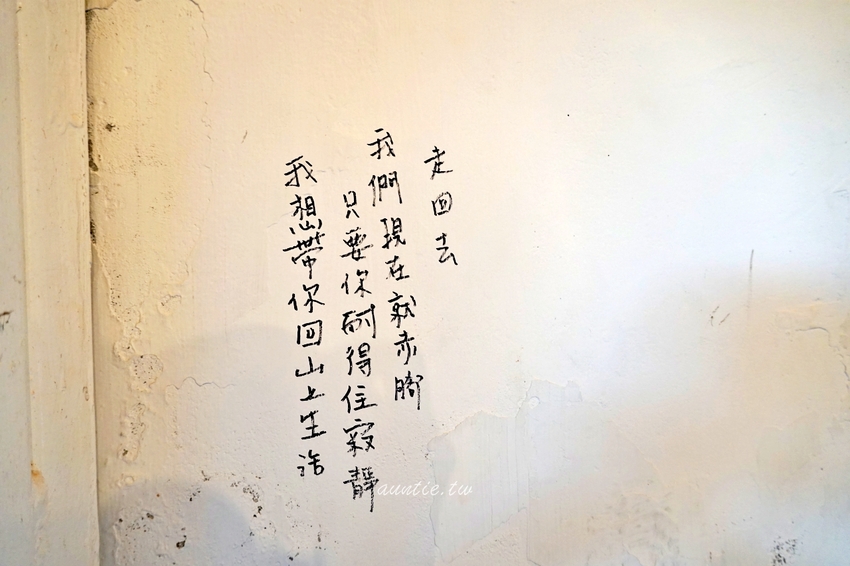 我想帶你回山上生活
只要你耐得住寂靜
我們現在就赤腳
走回去
auntie.tw